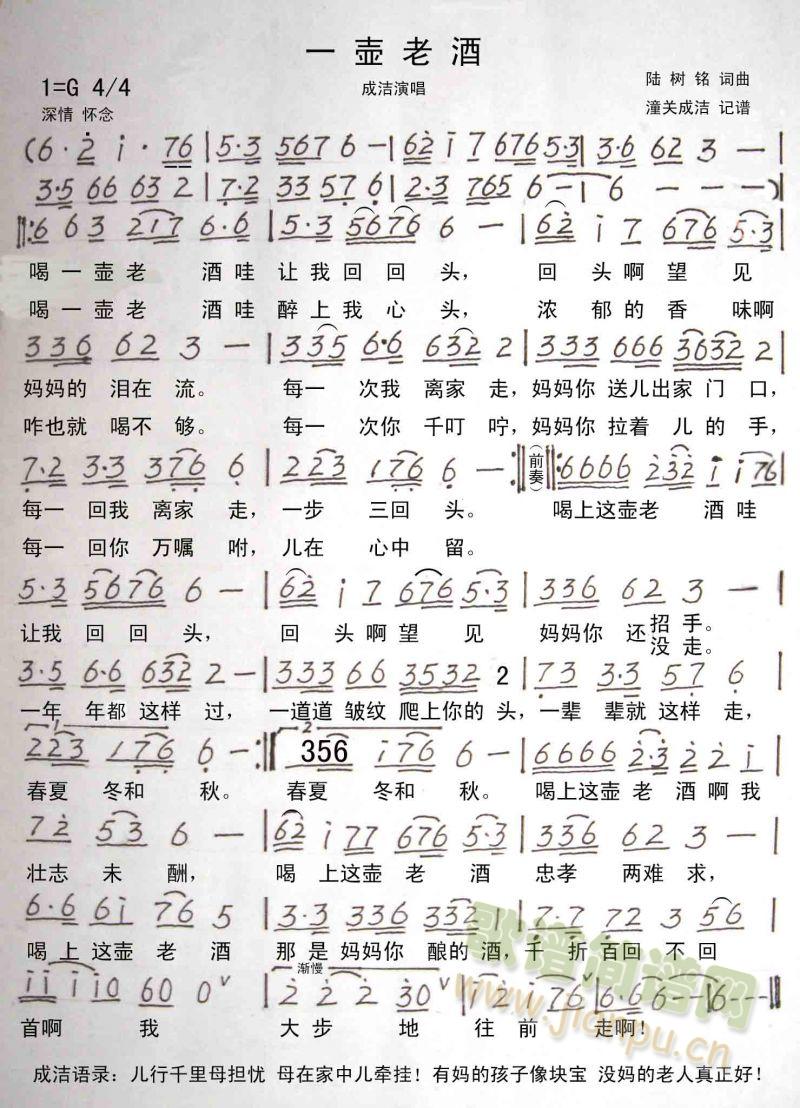 一 壶 老 酒
1=G 4/4
成洁演唱
陆 树 铭 词曲
深情 怀念
潼关成洁 记谱
(6·2 i·76|5·3 5676 6—|62 i7 676 5·3|3·6 62 3—|
3·5 66 63 2|7·2 33 57 6|2·3 765 6—|6 — —)|
‖:6 63 217 6·6|5·3 5676 6—|62 i7 676 5·3|
喝一壶老 酒哇 让我 回回 头, 回 头啊 望 见
喝一壶老 酒哇 醉上 我 心 头, 浓 郁的 香 味啊
336 62 3—|335 6·6 632 2|333 666 3632 2|
妈妈的 泪在 流。 每一 次我 离家 走,妈妈你 送儿出家 门 口,
咋也就 喝不 够。 每一 次你 千叮 咛,妈妈你 拉着 儿 的 手,
7·2 33 376 6|223 176 6—:‖(前奏)‖:6666 232 i i76|
每一 回我 离家 走, 一步 三回 头。 喝上这壶老 酒哇
每一 回你 万嘱 咐, 儿在 心中 留。
5·3 5676 6—|62 i7 676 5·3|336 62 3—|
让我 回回 头, 回 头啊 望 见 妈妈你 还招 手。
没 走。
3·5 6·6 632 2—|333 66 3532 2|73 3·3 57 6|
一年 年都 这样 过, 一道道 皱纹 爬上你的 头,一辈 辈就 这样 走,
1 2
223 176 6—:‖356 i76 6—|6666 2·3 22 i|
春夏 冬和 秋。 春夏 冬和 秋。 喝上这壶 老 酒啊 我
72 53 6—|62 i77 676 5·3|336 62 3—|
壮志 未 酬, 喝 上这壶 老 酒 忠孝 两难 求,
6·6 6i 76 5|3·3 336 662 2|7·7 72 3 56|
喝 上 这壶 老 酒 那 是 妈妈你 酿的 酒,千 折 百回 不 回
渐慢
ii i i0 60 0 ∨|2 2 2 30 ∨|i2 i 76 ∨|6·6 6—|6— —‖
首啊 我 大 步 地 往 前 走啊!
歌谱简谱网
www.jianpu.cn
成洁语录:儿行千里母担忧 母在家中儿牵挂!有妈的孩子像块宝 没妈的老人真正好!